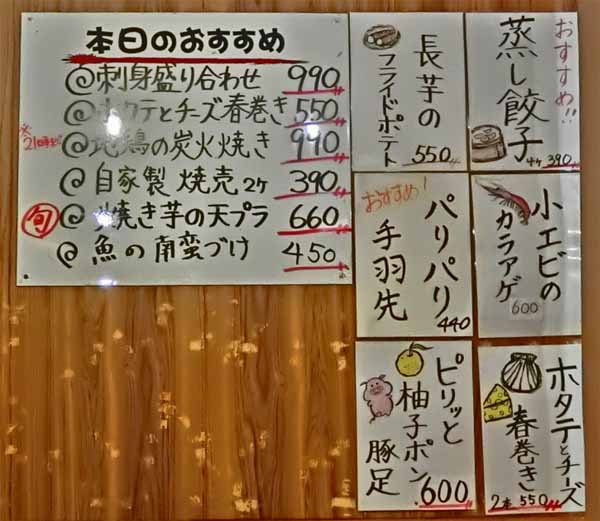 本日のおすすめ
刺身盛り合わせ 990
ホタテとチーズ春巻き 550
※21時まで
地鶏の炭火焼き 990
自家製 焼売 2ケ 390
旬 焼き芋の天プラ 660
魚の南蛮づけ 450
長芋の
フライドポテト
550
おすすめ!!
蒸し餃子
4ヶ 390
おすすめ!
パリパリ
手羽先
440
小エビの
カラアゲ
600
ピリッと
柚子ポン
豚足
600
ホタテとチーズ
春巻き
2本 550